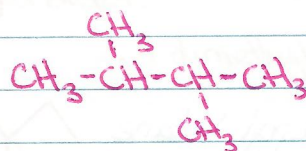 CH3
CH3-CH-CH-CH3
CH3